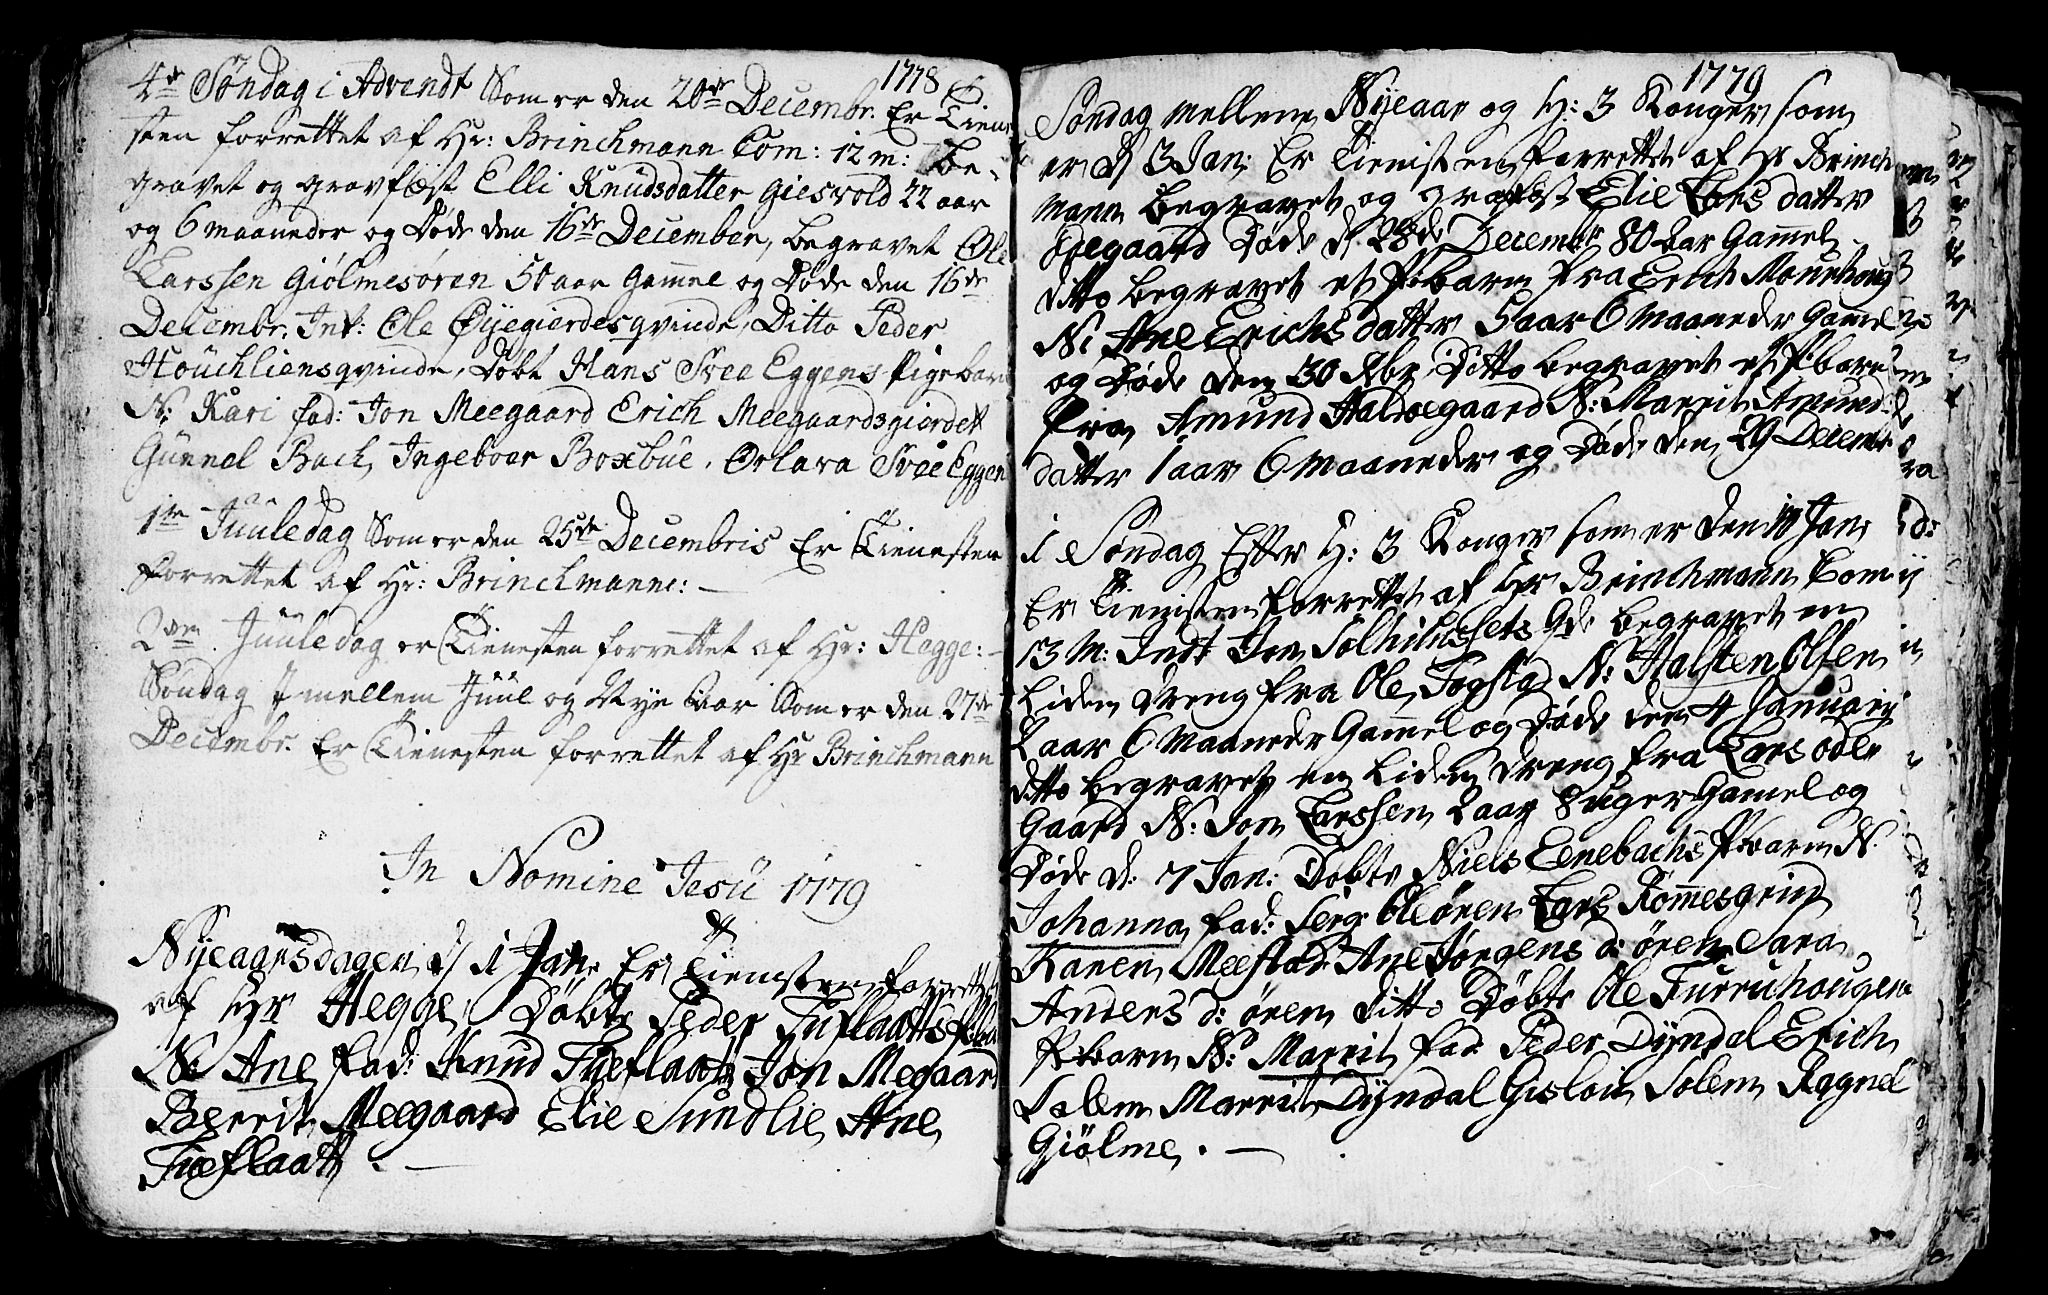 1778
4de Søndag i Advendt Som er den 20de Decembr. Er Tiene
sten forrettet af Hr: Brinchmann Com: 12 m: be-
gravet og gravfæst Elli Knudsdatter Giesvold 22 aar
og 6 maaneder og Døde den 16de December, begravet Ole
Larssen Giölmesören 50 aar gamel og Døde den 16de
Decembr. Int: Ole Öyegierdesqvinde, Ditto Peder
Houchliensqvinde, Döbt Hans Svee Eggens Pigebarn
N: Kari fad: Jon Meegaard Erich Meegaardsgierdet
Gunnel Bach, Ingeboer Boxbue, Orlava Svee Eggen
1te Juuledag Som er den 25de Decembris Er Tienesten
forrettet af Hr: Brinchmann: —
2den Juuledag er Tienesten forrettet af Hr: Hegge: —
Søndag mellem Juul og Nye Aar Som er den 27de
Decembr. Er Tienesten forrettet af Hr Brinchmann
In Nomine Jesu 1779
Nyeaarsdagen d 1 Jan: Er Tienesten forrettet
af Hr Hegge, Döbte Peder Tuflaatts
N: Ane fad: Knud Tueflaatt Jon Megaard
Berrit Meegaard Elie Sundlie, Ane
Tueflaatt. —
1779
Søndag mellem Nyeaar og H: 3 Konger som
er d 3 Jan: Er Tienisten forrettet af Hr Brinch
mann begravet og grafest Elie Lars datter
Döde d 28de Decembr 80 aar Gamel
ditto begravet et P:barn fra Erich
N: Ane Erichs datter 5 aar 6 maaneder Gamel
og Døde den 30 Xbr Ditto begravet et P:barn
fra Amund Haldoegaard N: Marrit Amund:
datter 1 aar 6 maaneder og Døde den 29 Decembr
1 Søndag Efter H: 3 Konger som er den 10 Jan:
Er Tienisten forrettet af Hr Brinchmann Com
13 M: Indt Jon begravet en
Liden Dreng fra Ole Fogstad N: Halsten Olsen
2 aar 6 Maaneder Gamel og Døde den 4 January
ditto begravet en Liden Dreng fra Lars ode
Gaard N: Jon Larssen 2 aar 8 uger Gamel og
Døde d: 7 Jan: Döbte Niels Eenebachs P:barn N.
Johanna fad: Serg: Ole ören Lars Römmesgrind
Karen Meestad Ane Jørgens d: ören Sara
Anders d: ören ditto Döbte Ole Furruhougens
P:barn N: Marrit fad Peder Dyndal Erich
Solem Marrit Dyndal Gisloug Solem Ragnel
Giölme. —